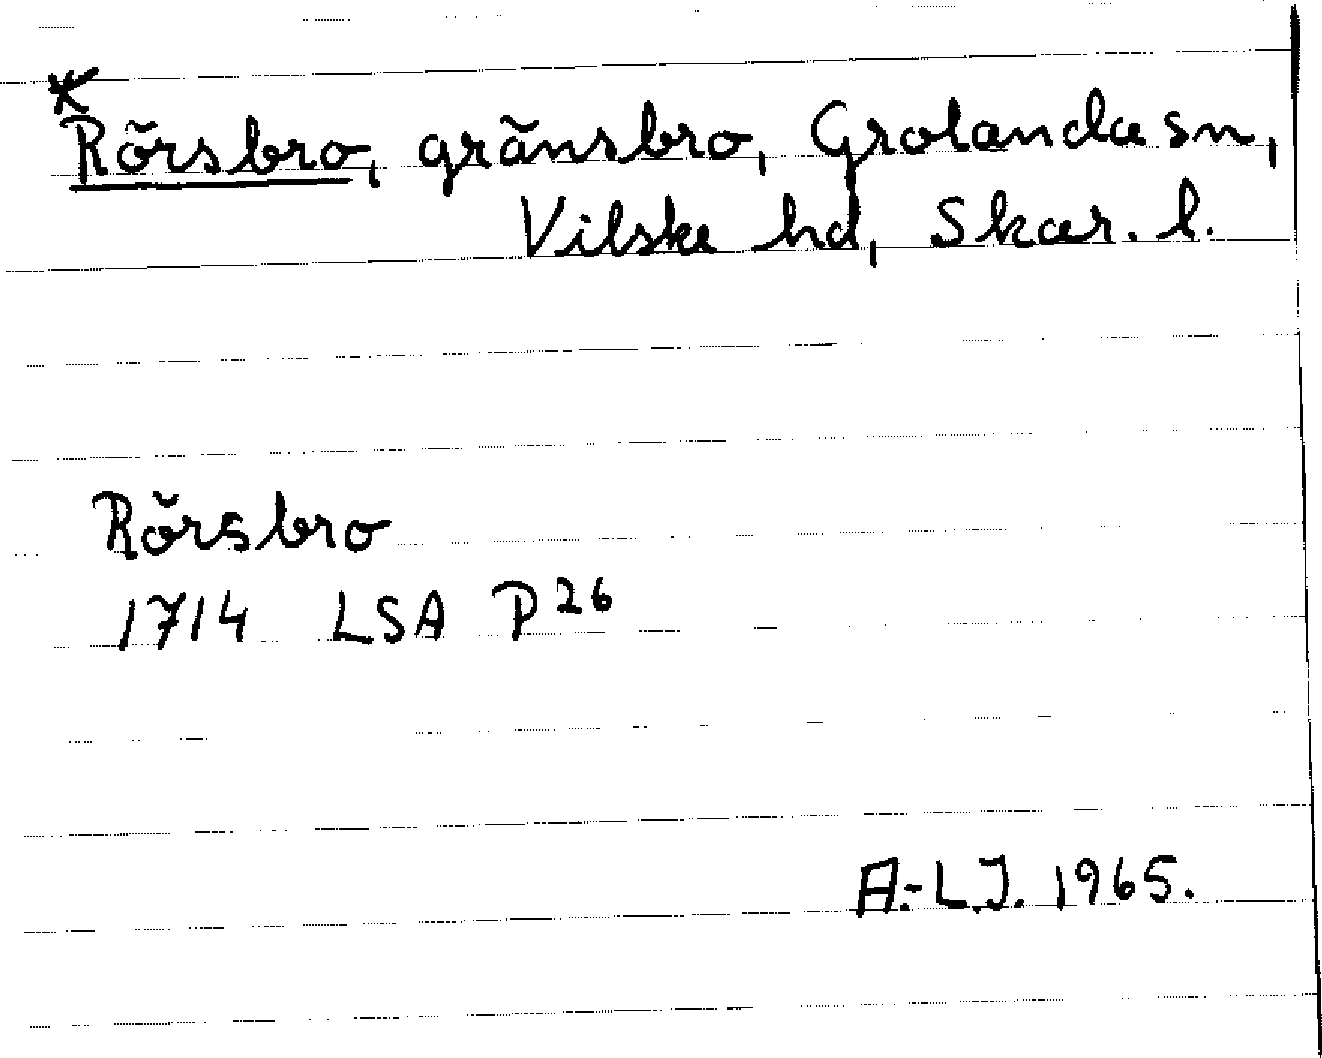 *Rörsbro, gränsbro, Grolanda sn,
Vilske hd, Skar. l.
Rörsbro
1714 LSA P26
A.-L.J. 1965.